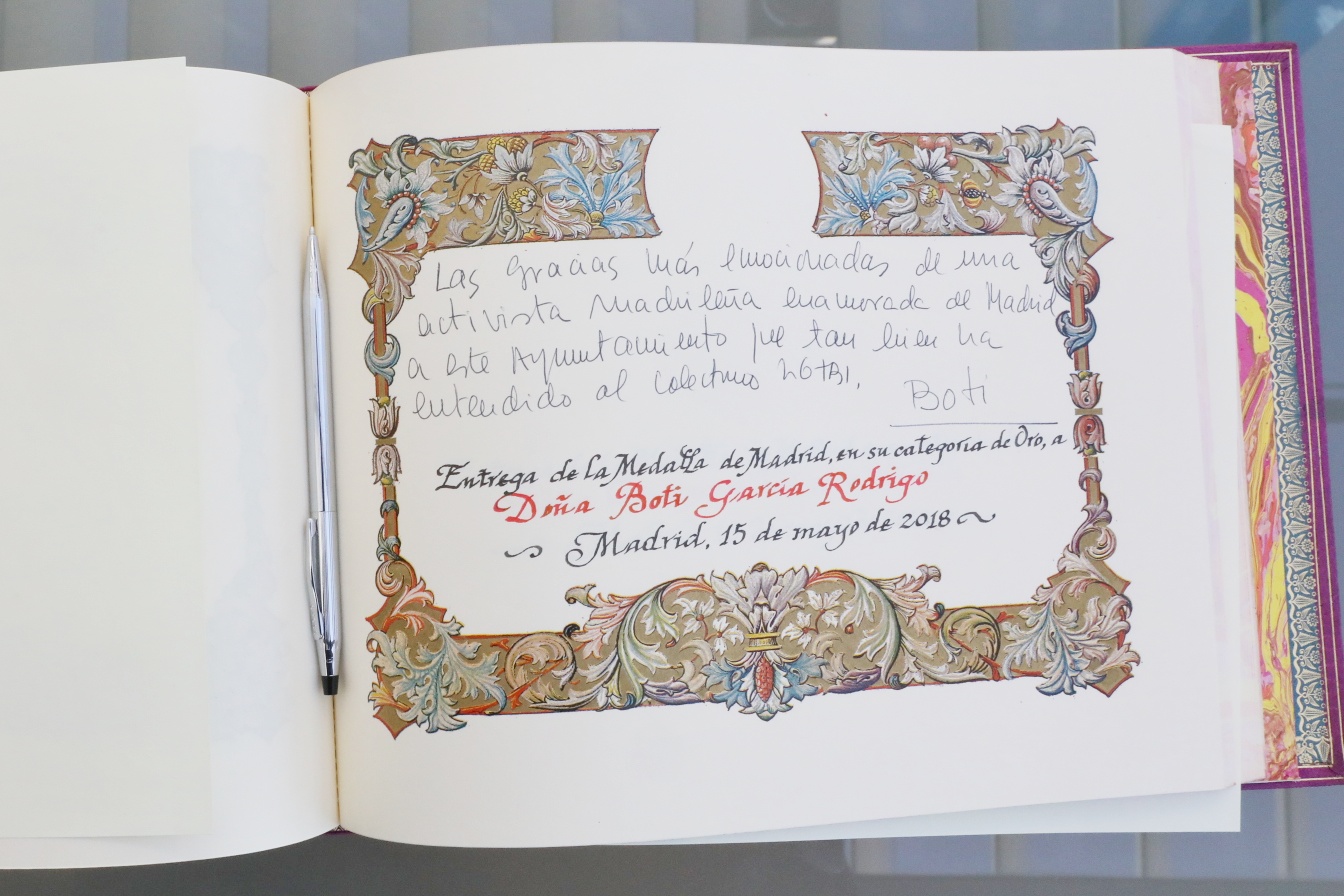 Las gracias más emocionadas de una
activista madrileña enamorada de Madrid
a este Ayuntamiento que tan bien ha
entendido al colectivo LGTBI.
Boti
Entrega de la Medalla de Madrid, en su categoría de Oro, a
Doña Boti García Rodrigo
Madrid, 15 de mayo de 2018